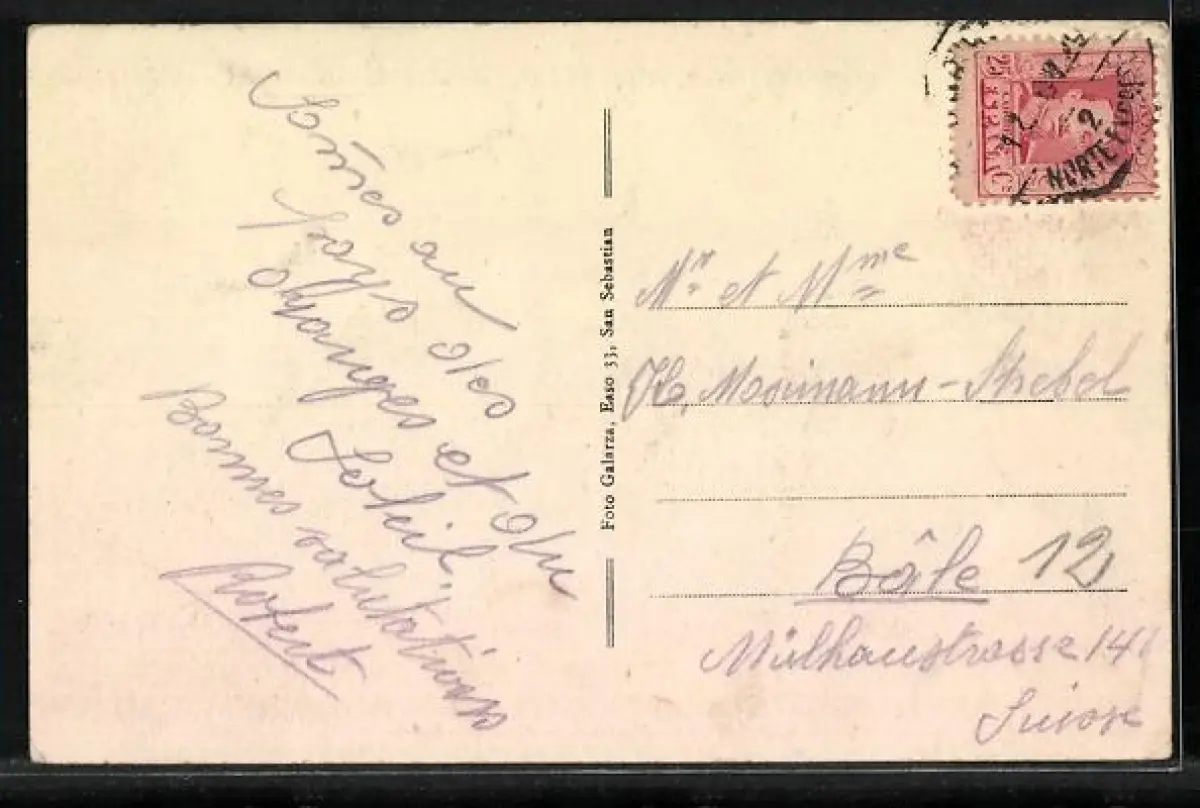 Sûmes au
pays des
Oranges et du
Soleil.
Bonnes salutations
Robert
Foto Galarza, Easo 33, San Sebastian
25 Cs
NORTE
2
Mr et Mme
H. Moorimann-Strebel
Bâle 12
Mülhauserstrasse 14
Suisse